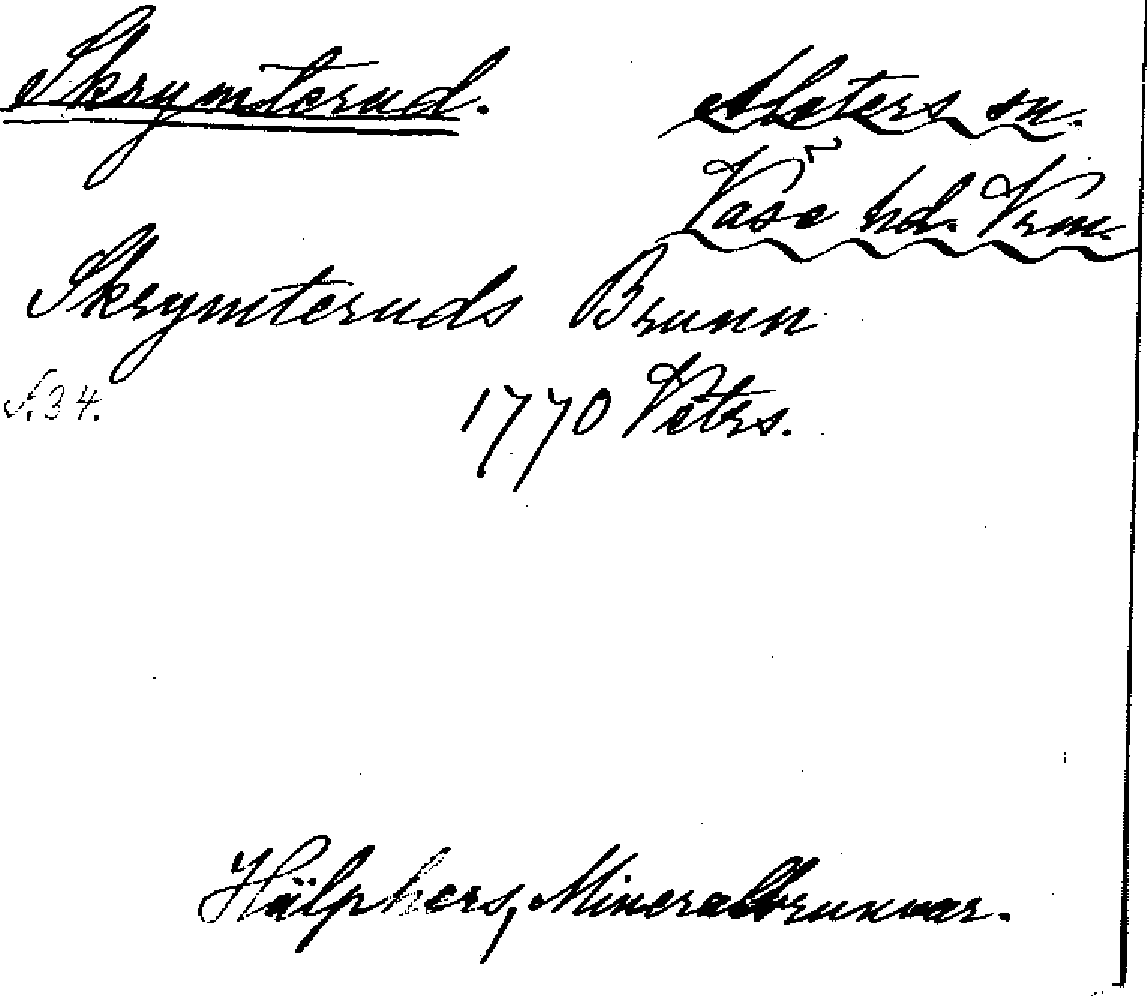 Skrymterud.
Alsters sn.
Väse hd. Vrm.
Skrymteruds Brunn
S. 34.
1770 Vetrs.
Hülphers, Mineralbrunnar.